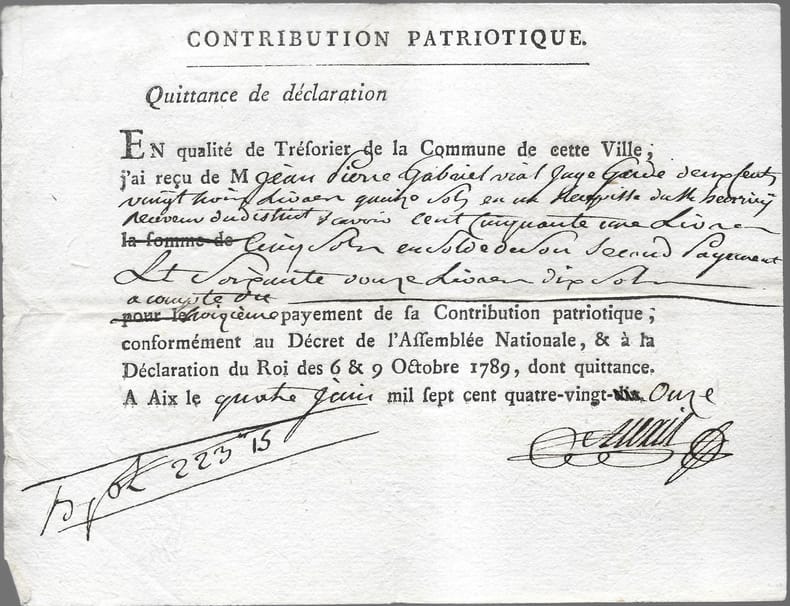 CONTRIBUTION PATRIOTIQUE.
Quittance de déclaration
EN qualité de Tréſorier de la Commune de cette Ville;
j'ai reçu de M jean Pierre Gabriel vial Juge Garde deux cents
vingt trois Livres quinze Sols en un
Receveur du district Savoir Cent Cinquante une Livres
la ſomme de Cinq Sols en Solde de Son Second Payement
Et Soixante douze Livres dix Sols
a compte du
pour le troizieme payement de ſa Contribution patriotique;
conformément au Décret de l'Aſſemblée Nationale, & à la
Déclaration du Roi des 6 & 9 Octobre 1789, dont quittance.
A Aix le quatre Juin mil ſept cent quatre-vingt-dix Onze
223 15